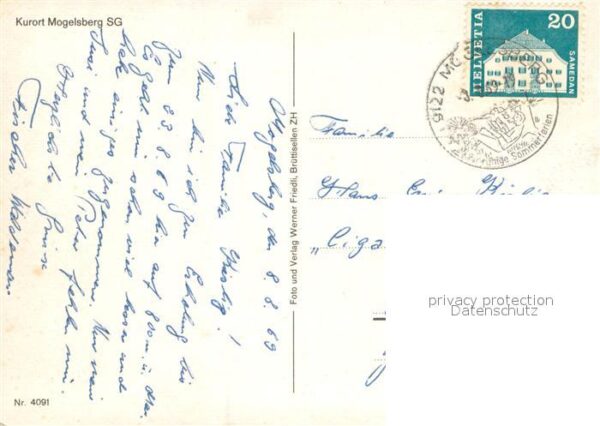 Kurort Mogelsberg SG
Mogelsberg, den 8. 8. 69
Liebe Familie
Nun bin ich zur Erholung bis
zum 23. 8. 69 hier auf 800 m. ü. M.
Es geht mir schon viel besser und
habe einiges zugenommen. Nur mein
und mein Peter fehlen mir.
Herzliche Grüsse
Nr. 4091
Foto und Verlag Werner Friedli, Brüttisellen ZH
HELVETIA
20
SAMEDAN
9122 MOGELSBERG
ruhige Sommerferien
Familie
Hans
"Ciga
privacy protection
Datenschutz